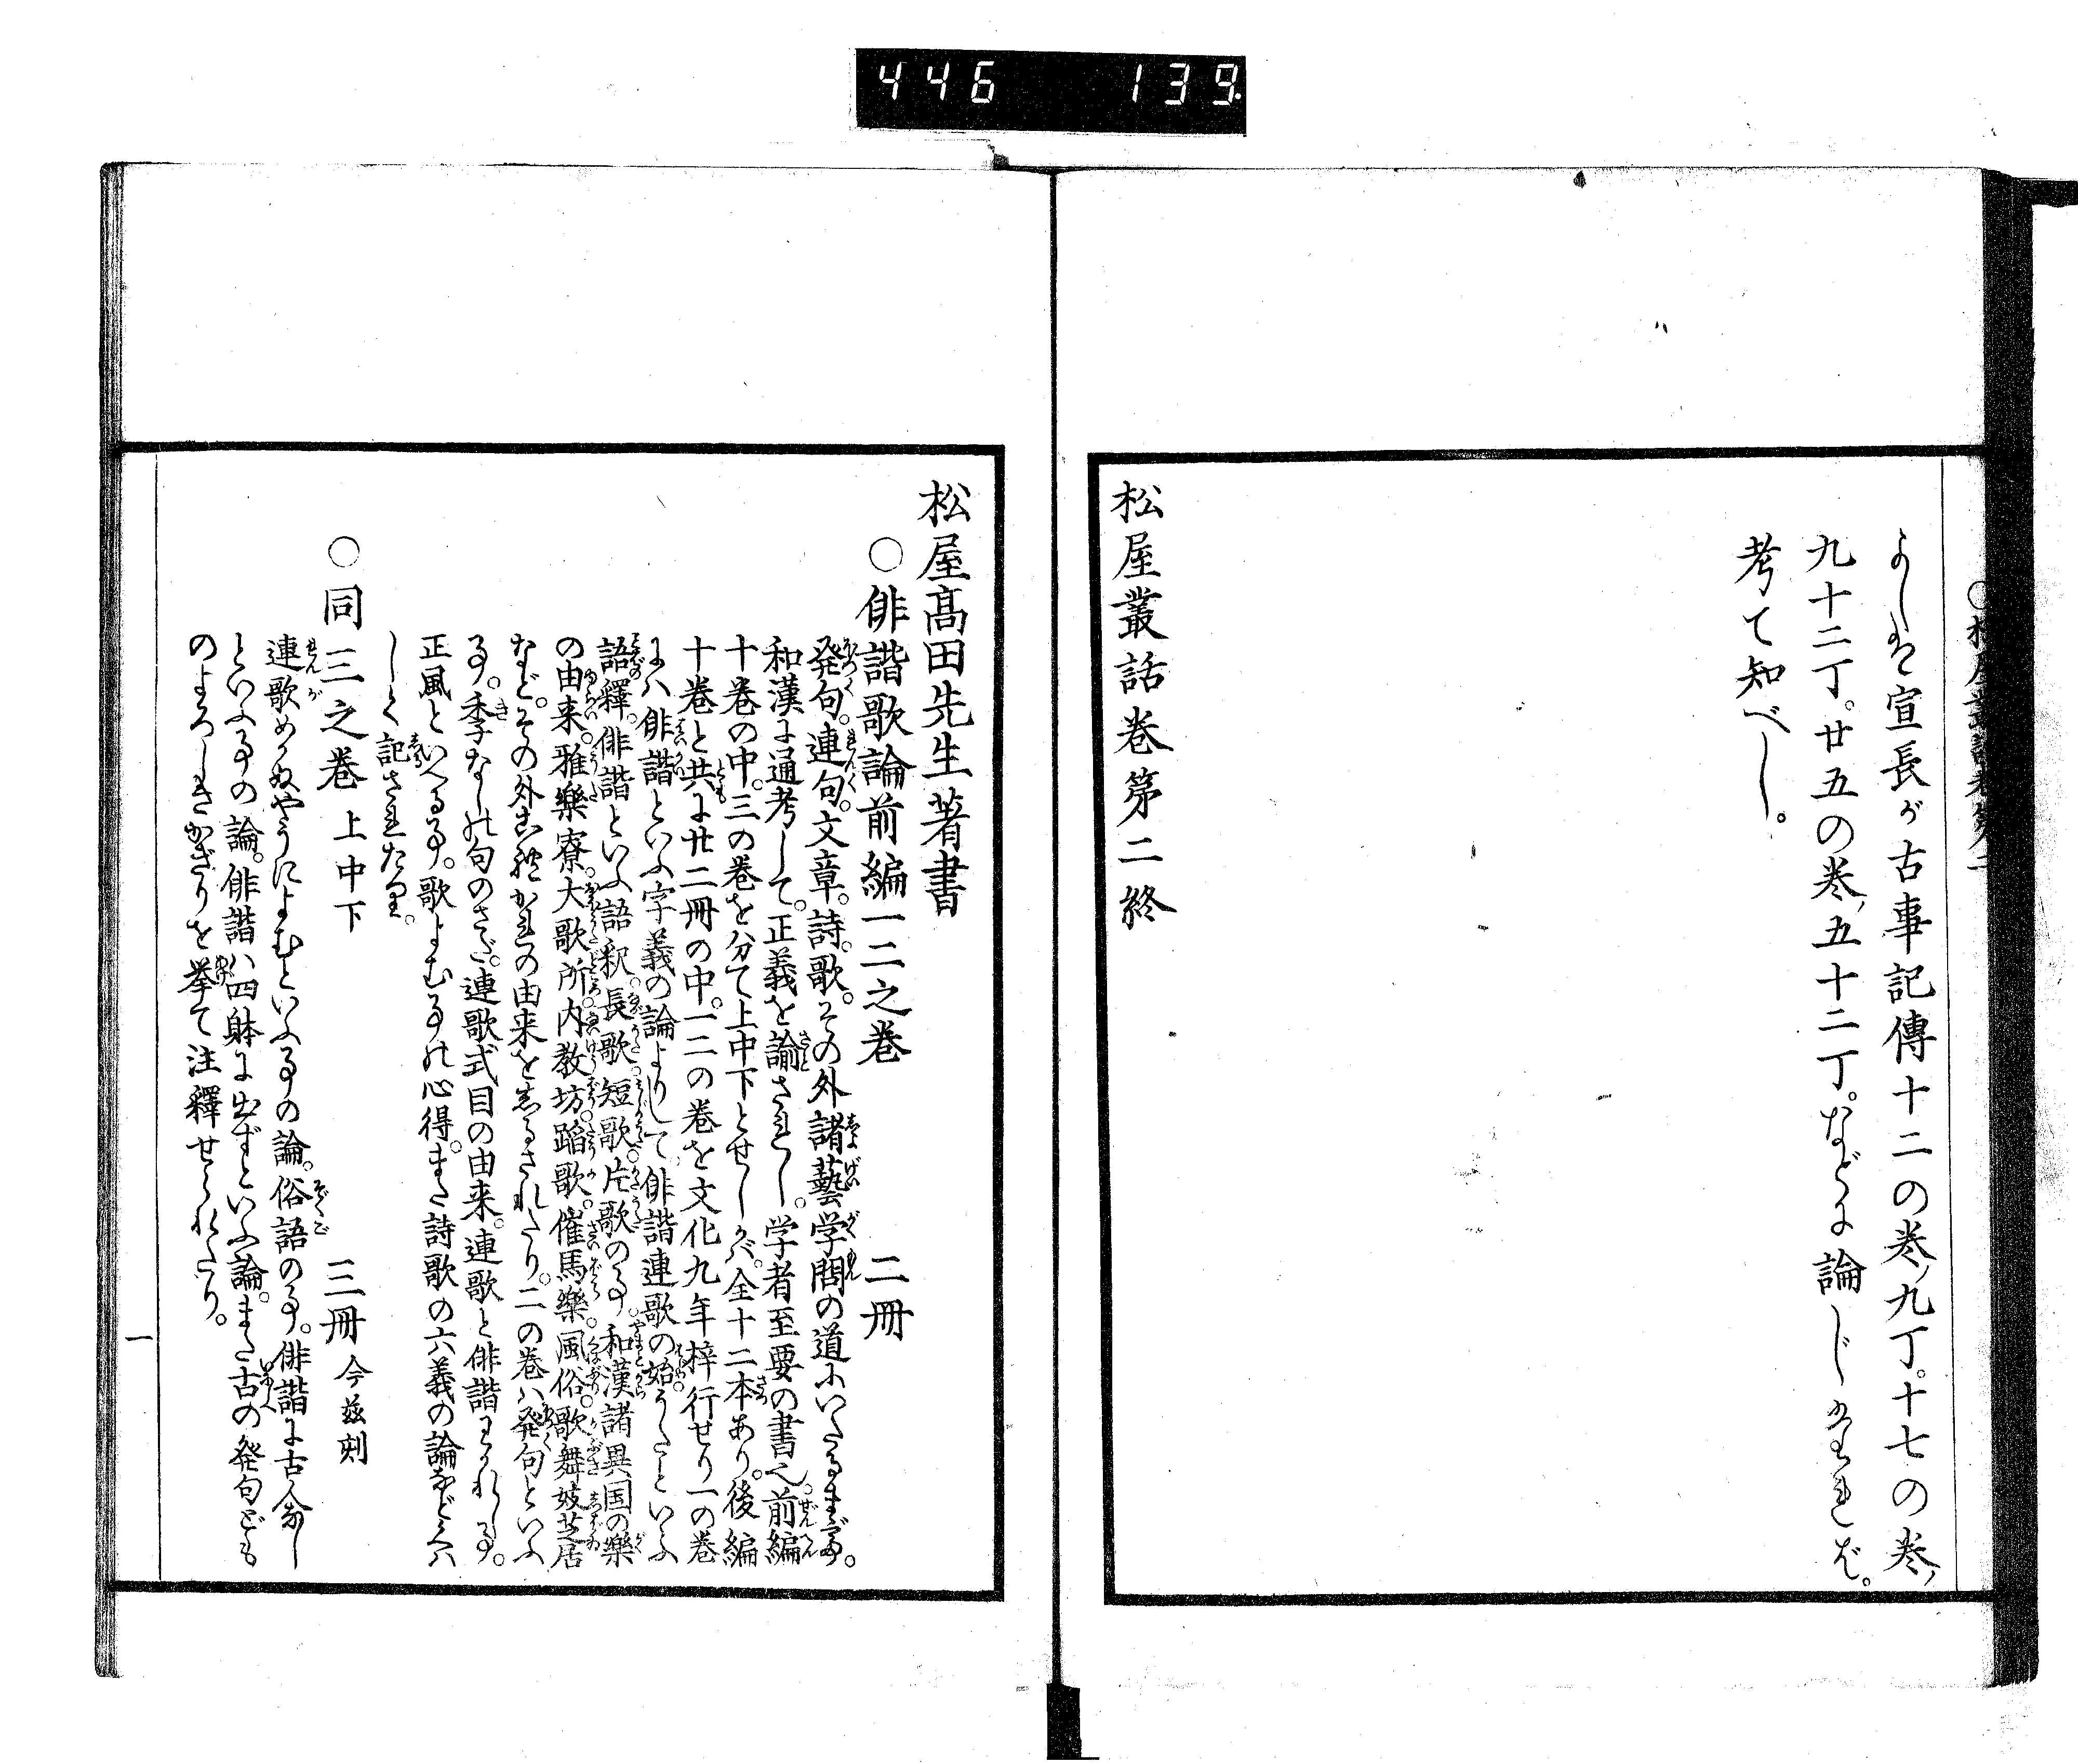 446 139
よしは宣長が古事記傳十二の巻ノ九丁。十七の巻ノ
九十二丁。廿五の巻ノ五十二丁。などに論じおかれたれば。
考て知べし。
松屋叢話巻第二終
松屋髙田先生著書
○俳諧歌論前編一二之巻 二冊
発句。連句。文章。詩。歌。その外諸藝学問の道にいたるまで。
和漢に通考して。正義を諭されし。学者至要の書也。前編
十巻の中。三の巻を分て上中下とせしかば。全十二本あり。後編
十巻と共に廿二冊の中。一二の巻を文化九年梓行せり一の巻
にハ俳諧といふ字義の論よりして俳諧連歌の始りしといふ
語釋。俳諧といふ語釈。長歌。短歌。片歌の事。和漢諸異国の樂
の由来。雅樂寮。大歌所。内教坊。蹈歌。催馬樂。風俗。歌舞妓芝居
など。その外これかれの由来をしるされたり。二の巻ハ発句といふ
事。季なしの句のさだ。連歌式目の由来。連歌と俳諧わかれし事。
正風といへる事。歌よむ事の心得。また詩歌の六義の論などくハ
しく記されたり。
○同三之巻 上中下 三冊 今茲刻
連歌めかぬやうによむといふ事の論。俗語の事。俳諧に古今なし
といふ事の論。俳諧ハ四躰に出ずといふ論。また古の発句ども
のよろしきかぎりを挙て注釋せられたり。
一